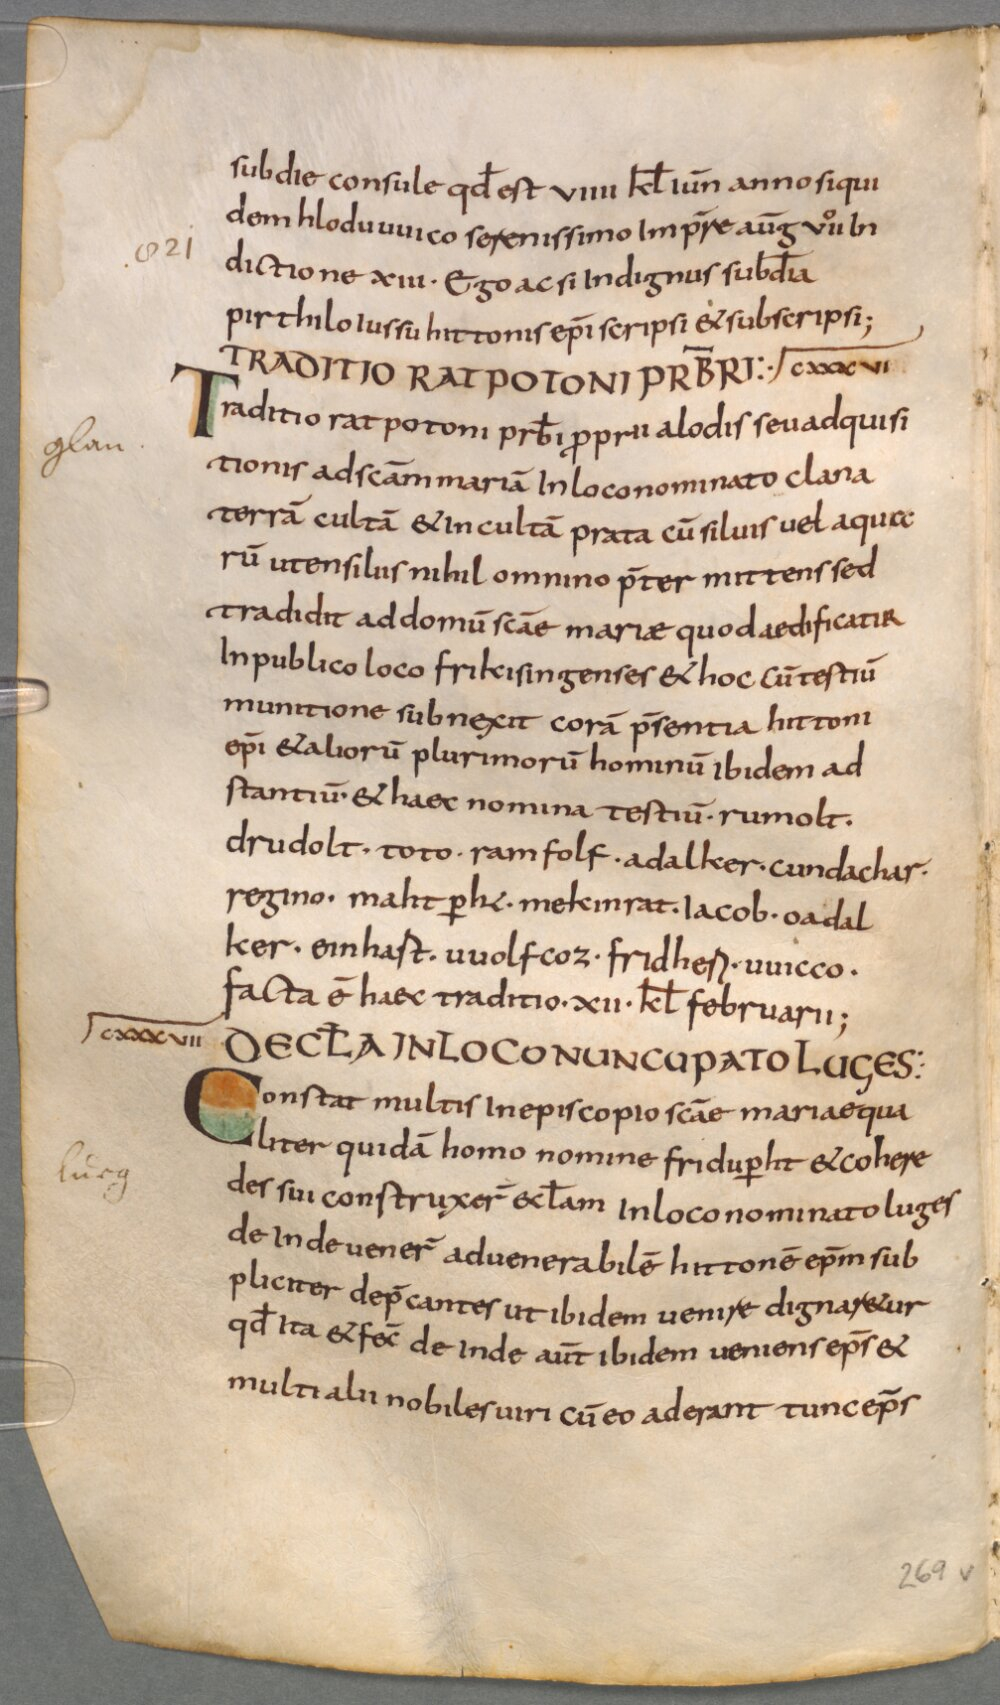 sub die consule qd̄ est viiii kł iun̄ anno siqui
dem hloduuuico serenissimo Imp̄re aūg vıı̊ In
821
dictione xiii · Ego ac si Indignus subd̄ia
pirthilo Iussu hittonis ep̄i scripsi & subscripsi;
TRADITIO RATPOTONI PRB̄RI:· cxxxvi
Traditio ratpotoni prb̄i ꝓprii alodis seu adquisi
glan .
tionis ad sc̄am mariā In loco nominato clana
terrā cultā & In cultā prata cū siluis uel aquicc
rū utensilus nihil omnino p̄ter mittens sed
tradidit ad domū sc̄ae mariæ quod aedificatur
In publico loco frikisingenses & hoc cū testiū
munitione subnexit corā p̄sentia hittoni
ep̄i & aliorū plurimorū hominū ibidem ad
stantiū· & haec nomina testiū· rumolt·
drudolt· toto· ramfolf· adalker· cundachar·
regino· mahtꝑht· mekinrat· Iacob· oadal
ker· einhast· uuolfcoz· fridhes̄· uuicco·
facta ē haec traditio· xii· kł februarii;
cxxxvii DE ECL̄A IN LOCO NUNCUPATO LUGES:
Constat multis In episcopio sc̄ae mariae qua
liter quidā homo nomine friduꝑht & cohere
lueg
des sui construxer̄ ecl̄am In loco nominato luges
de Inde uener̄ ad uenerabilē hittonē ep̄m sub
pliciter dep̄cantes ut ibidem uenire dignar&ur
qd̄ Ita & fec̄ de Inde aūt ibidem ueniens ep̄s &
multi alii nobiles uiri cū eo aderant tunc ep̄s
269 v